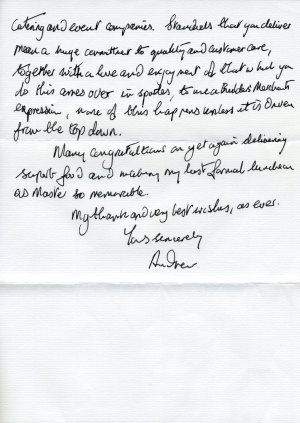 Catering and event companies. Standards that you deliver
mean a huge commitment to quality and customer care,
together with a love and enjoyment of that which you
do this comes over in spades, to use a builders merchants
expression, none of this happens unless it is driven
from the top down.
Many congratulations on yet again delivering
superb food and making my last formal luncheon
as Master so memorable.
My thanks and very best wishes, as ever.
Yours sincerely
Andrew